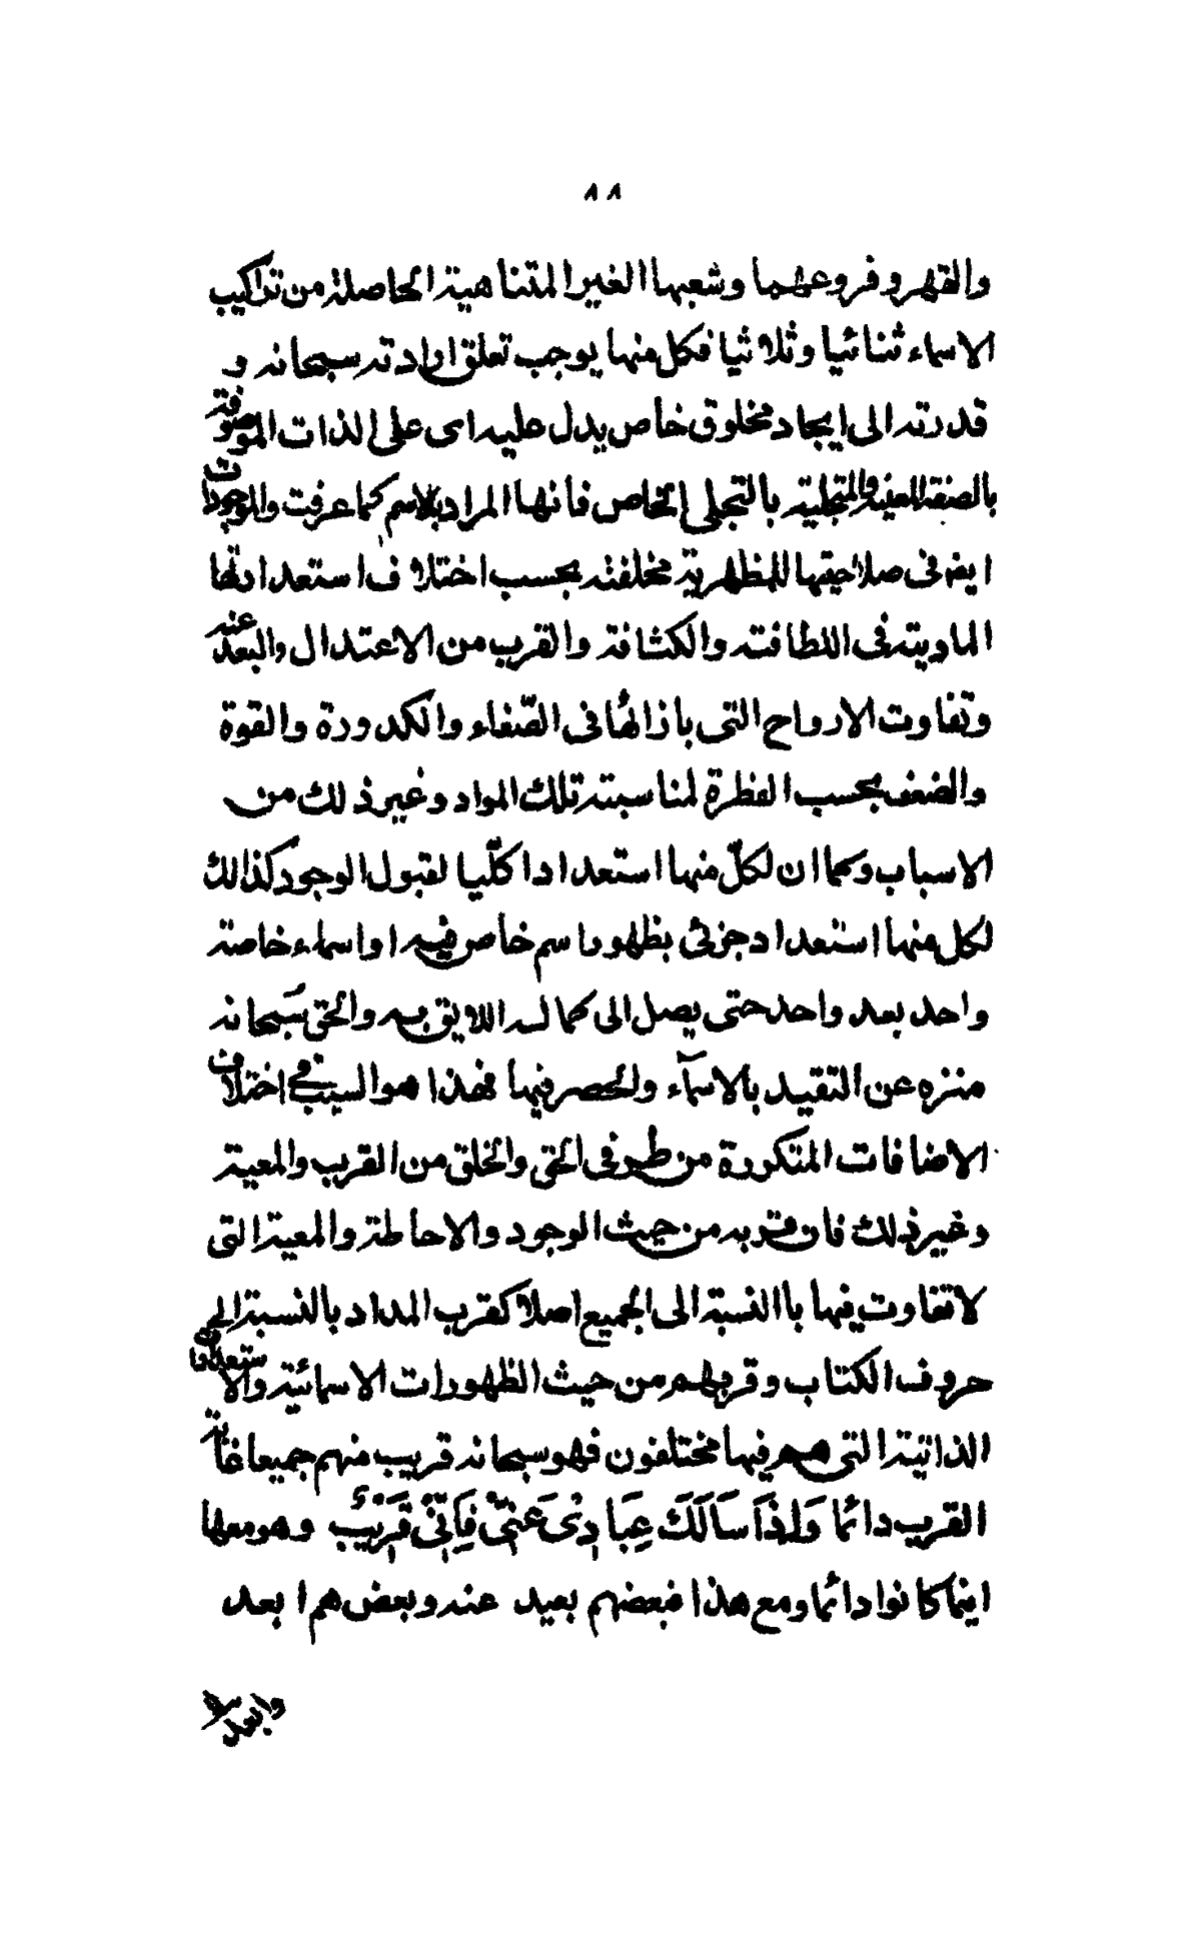 ٨٨
والقهر وفروعهما وشعبها الغير المتناهية الحاصلة من تراكيب
الاسماء ثنائيا وثلاثيا فكل منها يوجب تعلق ارادته سبحانه و
قدرته الى ايجاد مخلوق خاص يدل عليه اى على الذات الموصوفة
بالصفة المعينة والمتجلية بالتجلى الخاص فانها المراد بالاسم كما عرفت والموجودات
ايضا فى صلاحيتها للمظهرية مختلفة بحسب اختلاف استعداداتها
المادية فى اللطافة والكثافة والقرب من الاعتدال والبعد عنه
وتفاوت الارواح التى بازائها فى الصّفاء والكدورة والقوة
والضعف بحسب الفطرة لمناسبة تلك المواد وغير ذلك من
الاسباب وكما ان لكلّ منها استعدادا كلّيا لقبول الوجود كذالك
لكل منها استعداد جزئى بظهور اسم خاص فيه او اسماء خاصة
واحد بعد واحد حتى يصل الى كماله اللايق به والحق سبحانه
منزه عن التقيد بالاسمآء والحصر فيها فهذا هو السبب فى اختلاف
الاضافات المتكررة من طرفى الحق والخلق من القرب والمعية
وغير ذلك فان قربه من حيث الوجود والاحاطة والمعية التى
لا تفاوت فيها باالنسبة الى الجميع اصلا كقرب المداد بالنسبة الى
حروف الكتاب وقربهم من حيث الظهورات الاسمائية والاستعدادات
الذاتية التى هم فيها مختلفون فهو سبحانه قريب منهم جميعا غاية
القرب دائما وَاِذَا سَاَلَكَ عِبَادِىْ عَنِّىْ فَاِنِّىْ قَرِيْبٌ وهو معها
اينما كانوا دائما ومع هذا فبعضهم بعيد عنه وبعضهم ابعد